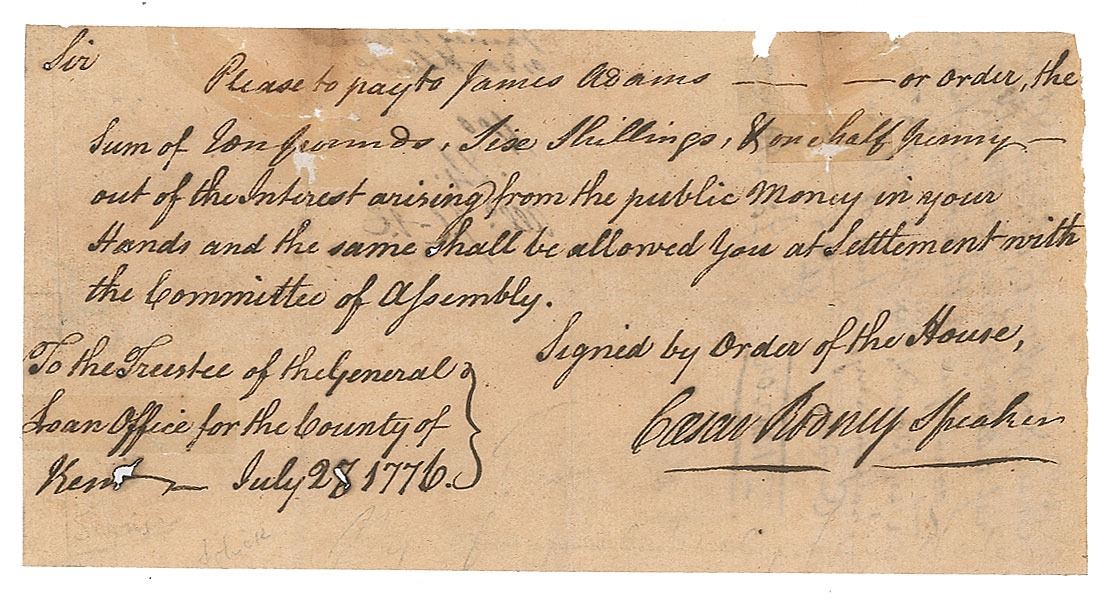 Sir
Please to pay to James Adams — — or order, the
Sum of Ten pounds, Six Shillings, & one half penny —
out of the Interest arising from the public Money in your
Hands and the same shall be allowed You at Settlement with
the Committee of Assembly.
Signed by Order of the House,
Cæsar Rodney Speaker
To the Trustee of the General
Loan Office for the County of
Kent — July 28 1776.